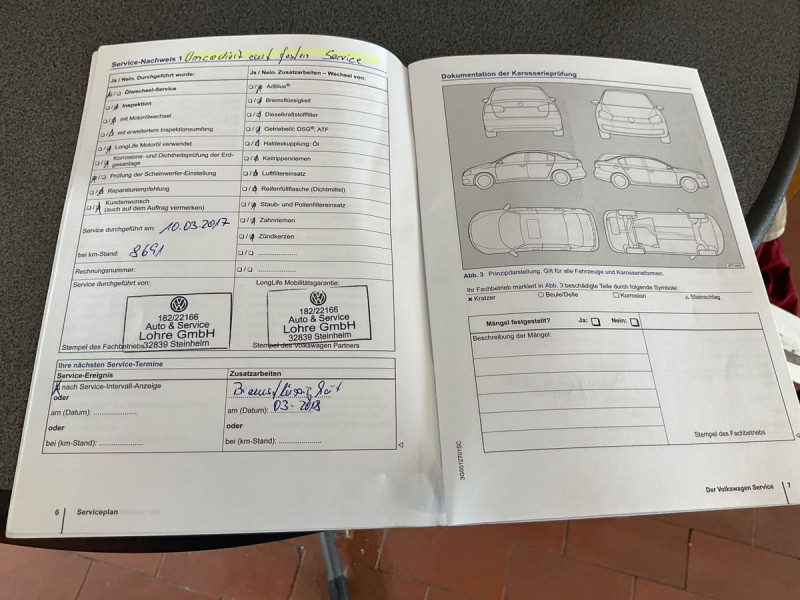 Service-Nachweis 1 Umcodiert auf festen Service
Ja / Nein. Durchgeführt wurde:
Ölwechsel-Service
Inspektion
mit Motorölwechsel
mit erweitertem Inspektionsumfang
LongLife Motoröl verwendet
Korrosions- und Dichtheitsprüfung der Erd-
gasanlage
Prüfung der Scheinwerfer-Einstellung
Reparaturempfehlung
Kundenwunsch
(auch auf dem Auftrag vermerken)
Service durchgeführt am: 10.03.2017
bei km-Stand: 8691
Rechnungsnummer:
Service durchgeführt von:
182/22166
Auto & Service
Lohre GmbH
32839 Steinheim
Stempel des Fachbetriebs
Ja / Nein. Zusatzarbeiten – Wechsel von:
AdBlue®
Bremsflüssigkeit
Dieselkraftstofffilter
Getriebeöl: DSG®, ATF
Haldexkupplung: Öl
Keilrippenriemen
Luftfiltereinsatz
Reifenfüllflasche (Dichtmittel)
Staub- und Pollenfiltereinsatz
Zahnriemen
Zündkerzen
....................
....................
LongLife Mobilitätsgarantie:
182/22166
Auto & Service
Lohre GmbH
32839 Steinheim
Stempel des Volkswagen Partners
Ihre nächsten Service-Termine
Service-Ereignis
nach Service-Intervall-Anzeige
oder
am (Datum): ....................
oder
bei (km-Stand): ....................
Zusatzarbeiten
Bremsflüssigkeit
am (Datum): 03-2018
oder
bei (km-Stand): ....................
6 Serviceplan
Dokumentation der Karosserieprüfung
Abb. 3 Prinzipdarstellung. Gilt für alle Fahrzeuge und Karosserieformen.
Ihr Fachbetrieb markiert in Abb. 3 beschädigte Teile durch folgende Symbole:
× Kratzer ○ Beule/Delle □ Korrosion △ Steinschlag
Mängel festgestellt? Ja: Nein:
Beschreibung der Mängel:
Stempel des Fachbetriebs
3G0012701SC
Der Volkswagen Service 7